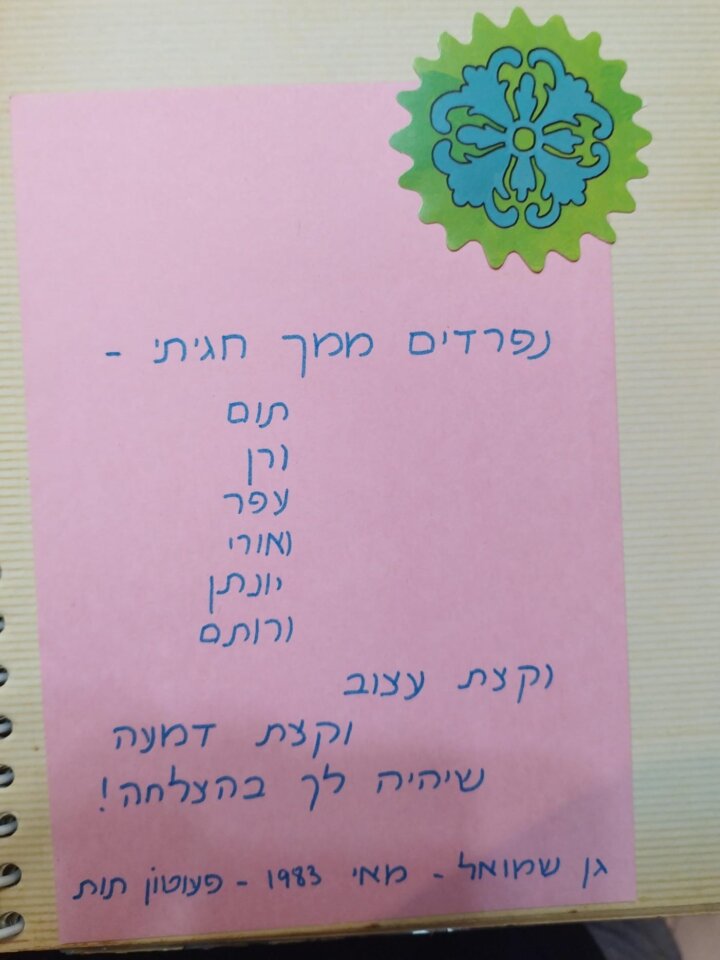 נפרדים ממך חגיתי -
תום
ורן
עפר
ואורי
יונתן
ורותם
וקצת עצוב
וקצת דמעה
שיהיה לך בהצלחה!
גן שמואל - מאי 1983 - פעוטון תות